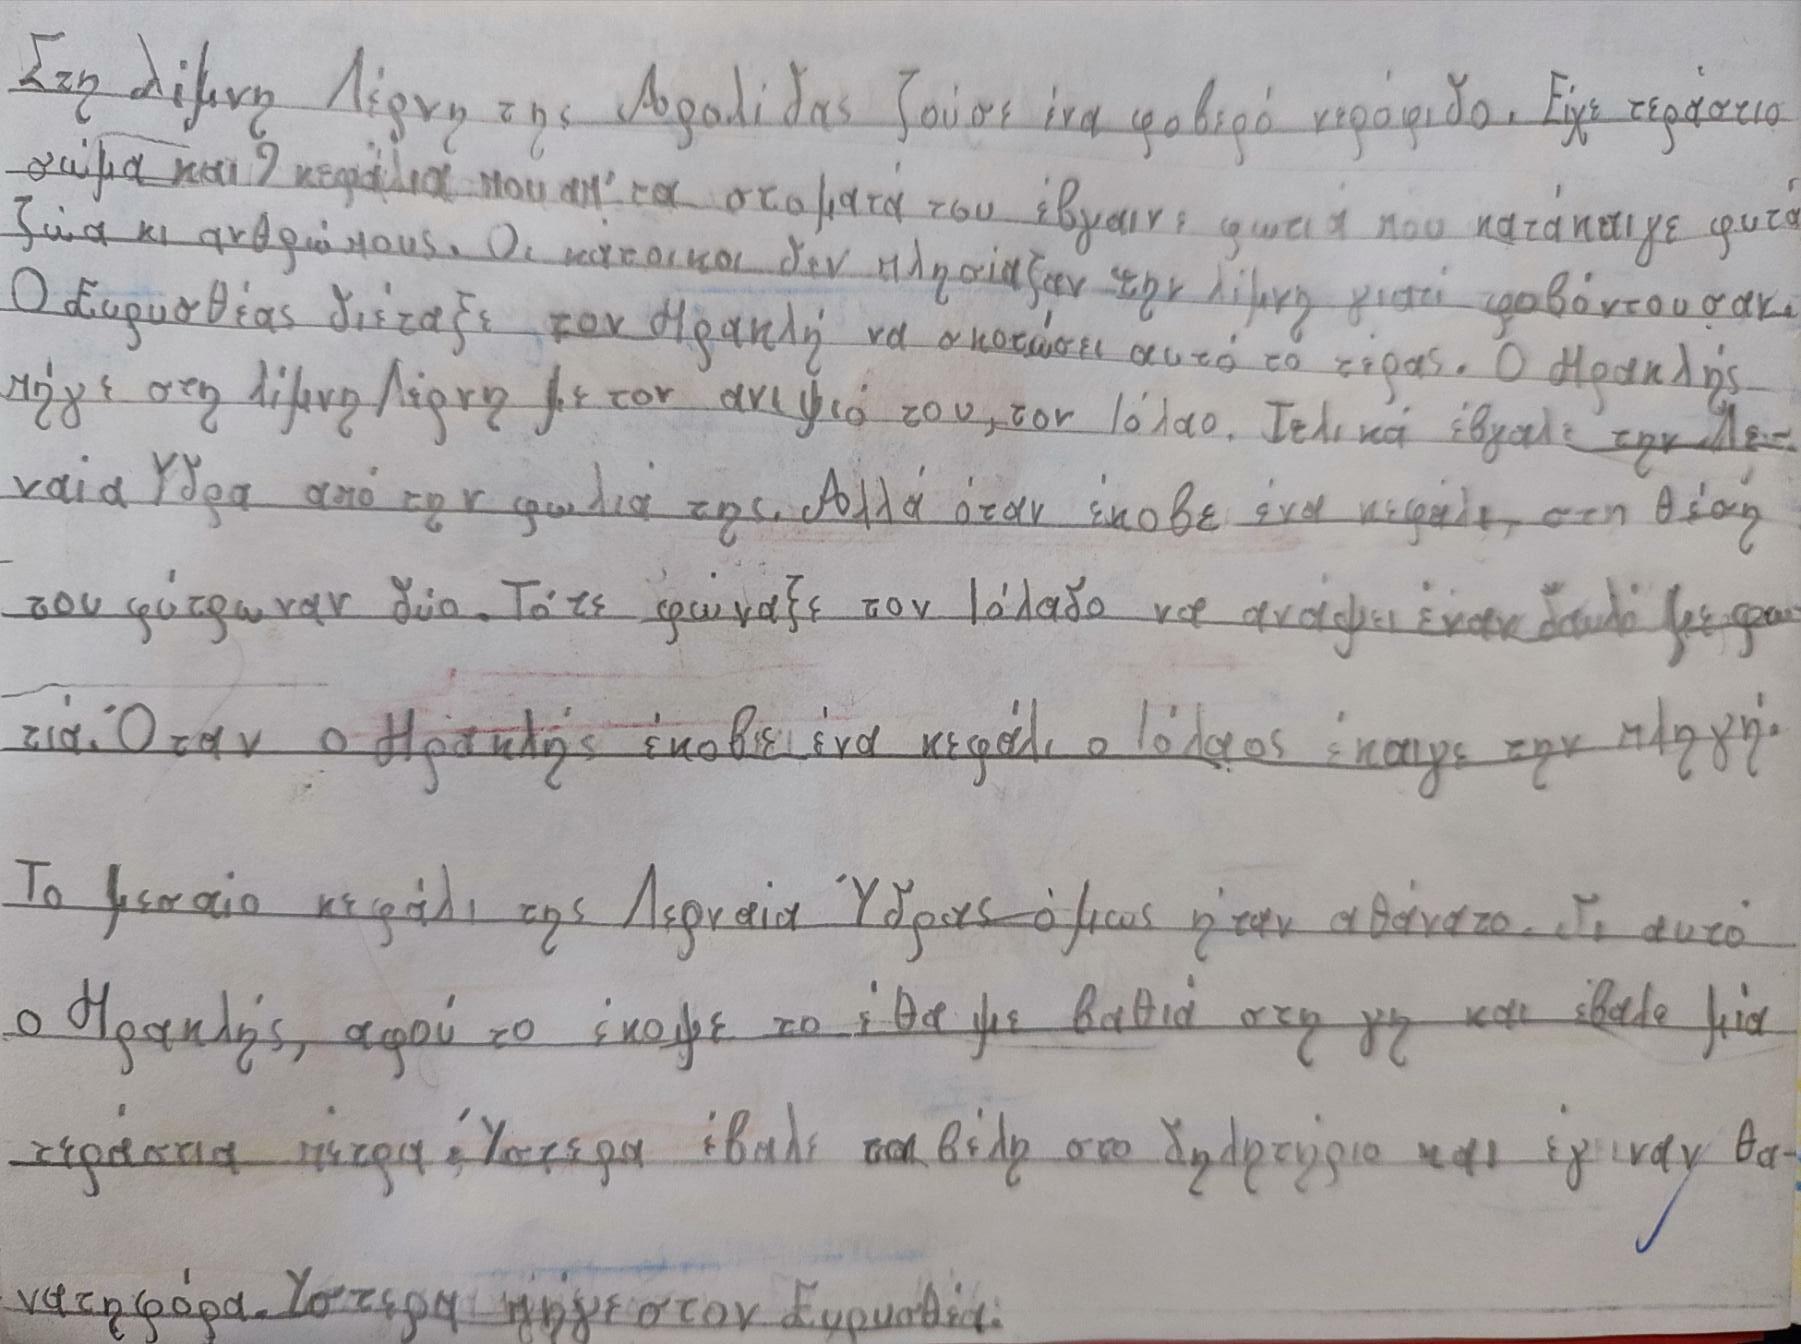 Στη λίμνη Λέρνη της Αργολίδας ζούσε ένα φοβερό νερόφιδο. Είχε τεράστιο
σώμα και 9 κεφάλια που απ' τα στόματά του έβγαινε φωτιά που κατάκαιγε φυτά
ζώα κι ανθρώπους. Οι κάτοικοι δεν πλησίαζαν την λίμνη γιατί φοβόντουσαν.
Ο Ευρυσθέας διέταξε τον Ηρακλή να σκοτώσει αυτό το τέρας. Ο Ηρακλής
πήγε στη λίμνη Λέρνη με τον ανιψιό του, τον Ιόλαο. Τελικά έβγαλε την Λε-
ναία Ύδρα από την φωλιά της. Αλλά όταν έκοβε ένα κεφάλι, στη θέση
του φύτρωναν δύο. Τότε φώναξε τον Ιόλαδο να ανάψει έναν δαυλό με φω
τιά. Όταν ο Ηρακλής έκοβε ένα κεφάλι ο Ιόλαος έκαιγε την πληγή.
Το μεσαίο κεφάλι της Λερναία Ύδρας όμως ήταν αθάνατο. Γι αυτό
ο Ηρακλής, αφού το έκοψε το έθαψε βαθιά στη γη και έβαλε μια
τεράστια πέτρα. Ύστερα έβαλε τα βέλη στο δηλητήριο και έγιναν θα-
νατηφόρα. Υστερα πήγε στον Ευρυσθέα.